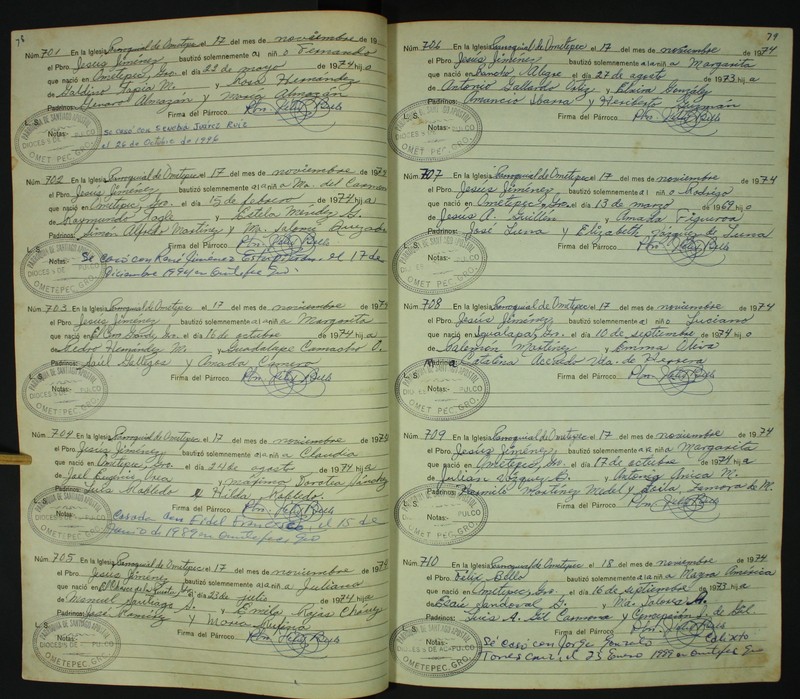 78
Núm. 701 En la Iglesia Parroquial de Ometepec el 17 del mes de noviembre de 19
el Pbro. Jesús Jiménez bautizó solemnemente al niñ o Fernando
que nació en Ometepec, Gro. el día 22 de mayo de 1974 hijo
de Galdino Tapia M. y Rosa Hernández
Padrinos: Genaro Almazán y María Almazán
Firma del Párroco Pbro. Félix Bello
L. S.
PARROQUIA DE SANTIAGO APOSTOL
DIOCESIS DE ACAPULCO
OMETEPEC, GRO.
Notas: se casó con Juárez Ruiz
el 26 de Octubre de 1996
Núm. 702 En la Iglesia Parroquial de Ometepec el 17 del mes de noviembre de 197
el Pbro. Jesús Jiménez bautizó solemnemente a la niñ a Ma. del Carmen
que nació en Ometepec, Gro. el día 15 de febrero de 1974 hij a
de Raymundo y Estela Méndez G.
Padrinos: Simón Alfredo Martínez y Ma. Salomé
Firma del Párroco Pbro. Félix Bello
L. S.
PARROQUIA DE SANTIAGO APOSTOL
DIOCESIS DE ACAPULCO
OMETEPEC, GRO.
Notas: Se casó con René Jiménez el 17 de
Diciembre 1994 en Ometepec Gro.
Núm. 703 En la Iglesia Parroquial de Ometepec el 17 del mes de noviembre de 1974
el Pbro. Jesús Jiménez bautizó solemnemente a la niñ a Margarita
que nació en Gro. el día 16 de octubre de 1974 hij a
de Pedro Hernández M. y Guadalupe Camacho O.
Padrinos: Ariel Gallegos y Amada
Firma del Párroco Pbro. Félix Bello
L. S.
PARROQUIA DE SANTIAGO APOSTOL
DIOCESIS DE ACAPULCO
OMETEPEC, GRO.
Notas:
Núm. 704 En la Iglesia Parroquial de Ometepec el 17 del mes de noviembre de 1974
el Pbro. Jesús Jiménez bautizó solemnemente a la niñ a Claudia
que nació en Ometepec, Gro. el día 24 de agosto de 1974 hij a
de Joel Eugenio y Máximo Dorotea Sánchez
Padrinos: Luis Robledo e Hilda Robledo.
Firma del Párroco Pbro. Félix Bello
L. S.
PARROQUIA DE SANTIAGO APOSTOL
DIOCESIS DE ACAPULCO
OMETEPEC, GRO.
Notas: Casada con Fidel Francisco el 15 de
Junio de 1989 en Ometepec, Gro
Núm. 705 En la Iglesia Parroquial de Ometepec el 17 del mes de noviembre de 1974
el Pbro. Jesús Jiménez bautizó solemnemente a la niñ a Juliana
que nació en el día 23 de julio de 1974 hij a
de Manuel Santiago y Emilia Rojas Chávez
Padrinos: José Ramírez y María
Firma del Párroco Pbro. Félix Bello
L. S.
PARROQUIA DE SANTIAGO APOSTOL
DIOCESIS DE ACAPULCO
OMETEPEC, GRO.
Notas:
79
Núm. 706 En la Iglesia Parroquial de Ometepec el 17 del mes de noviembre de 1974
el Pbro. Jesús Jiménez bautizó solemnemente a la niñ a Margarita
que nació en Rancho Alegre el día 27 de agosto de 1973 hij a
de Antonio Gallardo Ortiz y Elvira González
Padrinos: Amancio Ibarra y Heriberta Guzmán
Firma del Párroco Pbro. Félix Bello
L. S.
PARROQUIA DE SANTIAGO APOSTOL
DIOCESIS DE ACAPULCO
OMETEPEC, GRO.
Notas:
Núm. 707 En la Iglesia Parroquial de Ometepec el 17 del mes de noviembre de 1974
el Pbro. Jesús Jiménez bautizó solemnemente al niñ o Rodrigo
que nació en Ometepec, Gro. el día 13 de marzo de 1969 hij o
de Jesús A. Guillén y Amada Figueroa
Padrinos: José Luna y Elizabeth Vázquez de Luna
Firma del Párroco Pbro. Félix Bello
L. S.
PARROQUIA DE SANTIAGO APOSTOL
DIOCESIS DE ACAPULCO
OMETEPEC, GRO.
Notas:
Núm. 708 En la Iglesia Parroquial de Ometepec el 17 del mes de noviembre de 1974
el Pbro. Jesús Jiménez bautizó solemnemente al niñ o Luciano
que nació en Igualapa, Gro. el día 10 de septiembre de 1974 hij o
de Martínez y Emma
Catalina Acevedo Vda. de Herrera
Firma del Párroco Pbro. Félix Bello
L. S.
PARROQUIA DE SANTIAGO APOSTOL
DIOCESIS DE ACAPULCO
OMETEPEC, GRO.
Notas:
Núm. 709 En la Iglesia Parroquial de Ometepec el 17 del mes de noviembre de 1974
el Pbro. Jesús Jiménez bautizó solemnemente a la niñ a Margarita
que nació en Ometepec, Gro. el día 17 de octubre de 1974 hij a
de Julián Vázquez y Antonia M.
Padrinos: Martínez Medel y Zamora de M.
Firma del Párroco Pbro. Félix Bello
L. S.
PARROQUIA DE SANTIAGO APOSTOL
DIOCESIS DE ACAPULCO
OMETEPEC, GRO.
Notas:
Núm. 710 En la Iglesia Parroquial de Ometepec el 18 del mes de noviembre de 1974
el Pbro. Félix Bello bautizó solemnemente a la niñ a Mayra América
que nació en Ometepec, Gro el día 16 de septiembre de 1973 hij a
de Sandoval y Ma. A.
Padrinos: Luis A. Gil Carmona y Concepción de Gil
Firma del Párroco Pbro. Félix Bello
L. S.
PARROQUIA DE SANTIAGO APOSTOL
DIOCESIS DE ACAPULCO
OMETEPEC, GRO.
Notas: Se casó con Jorge Gonzalo Calixto
Torres el 25 Enero 1999 en Ometepec Gro